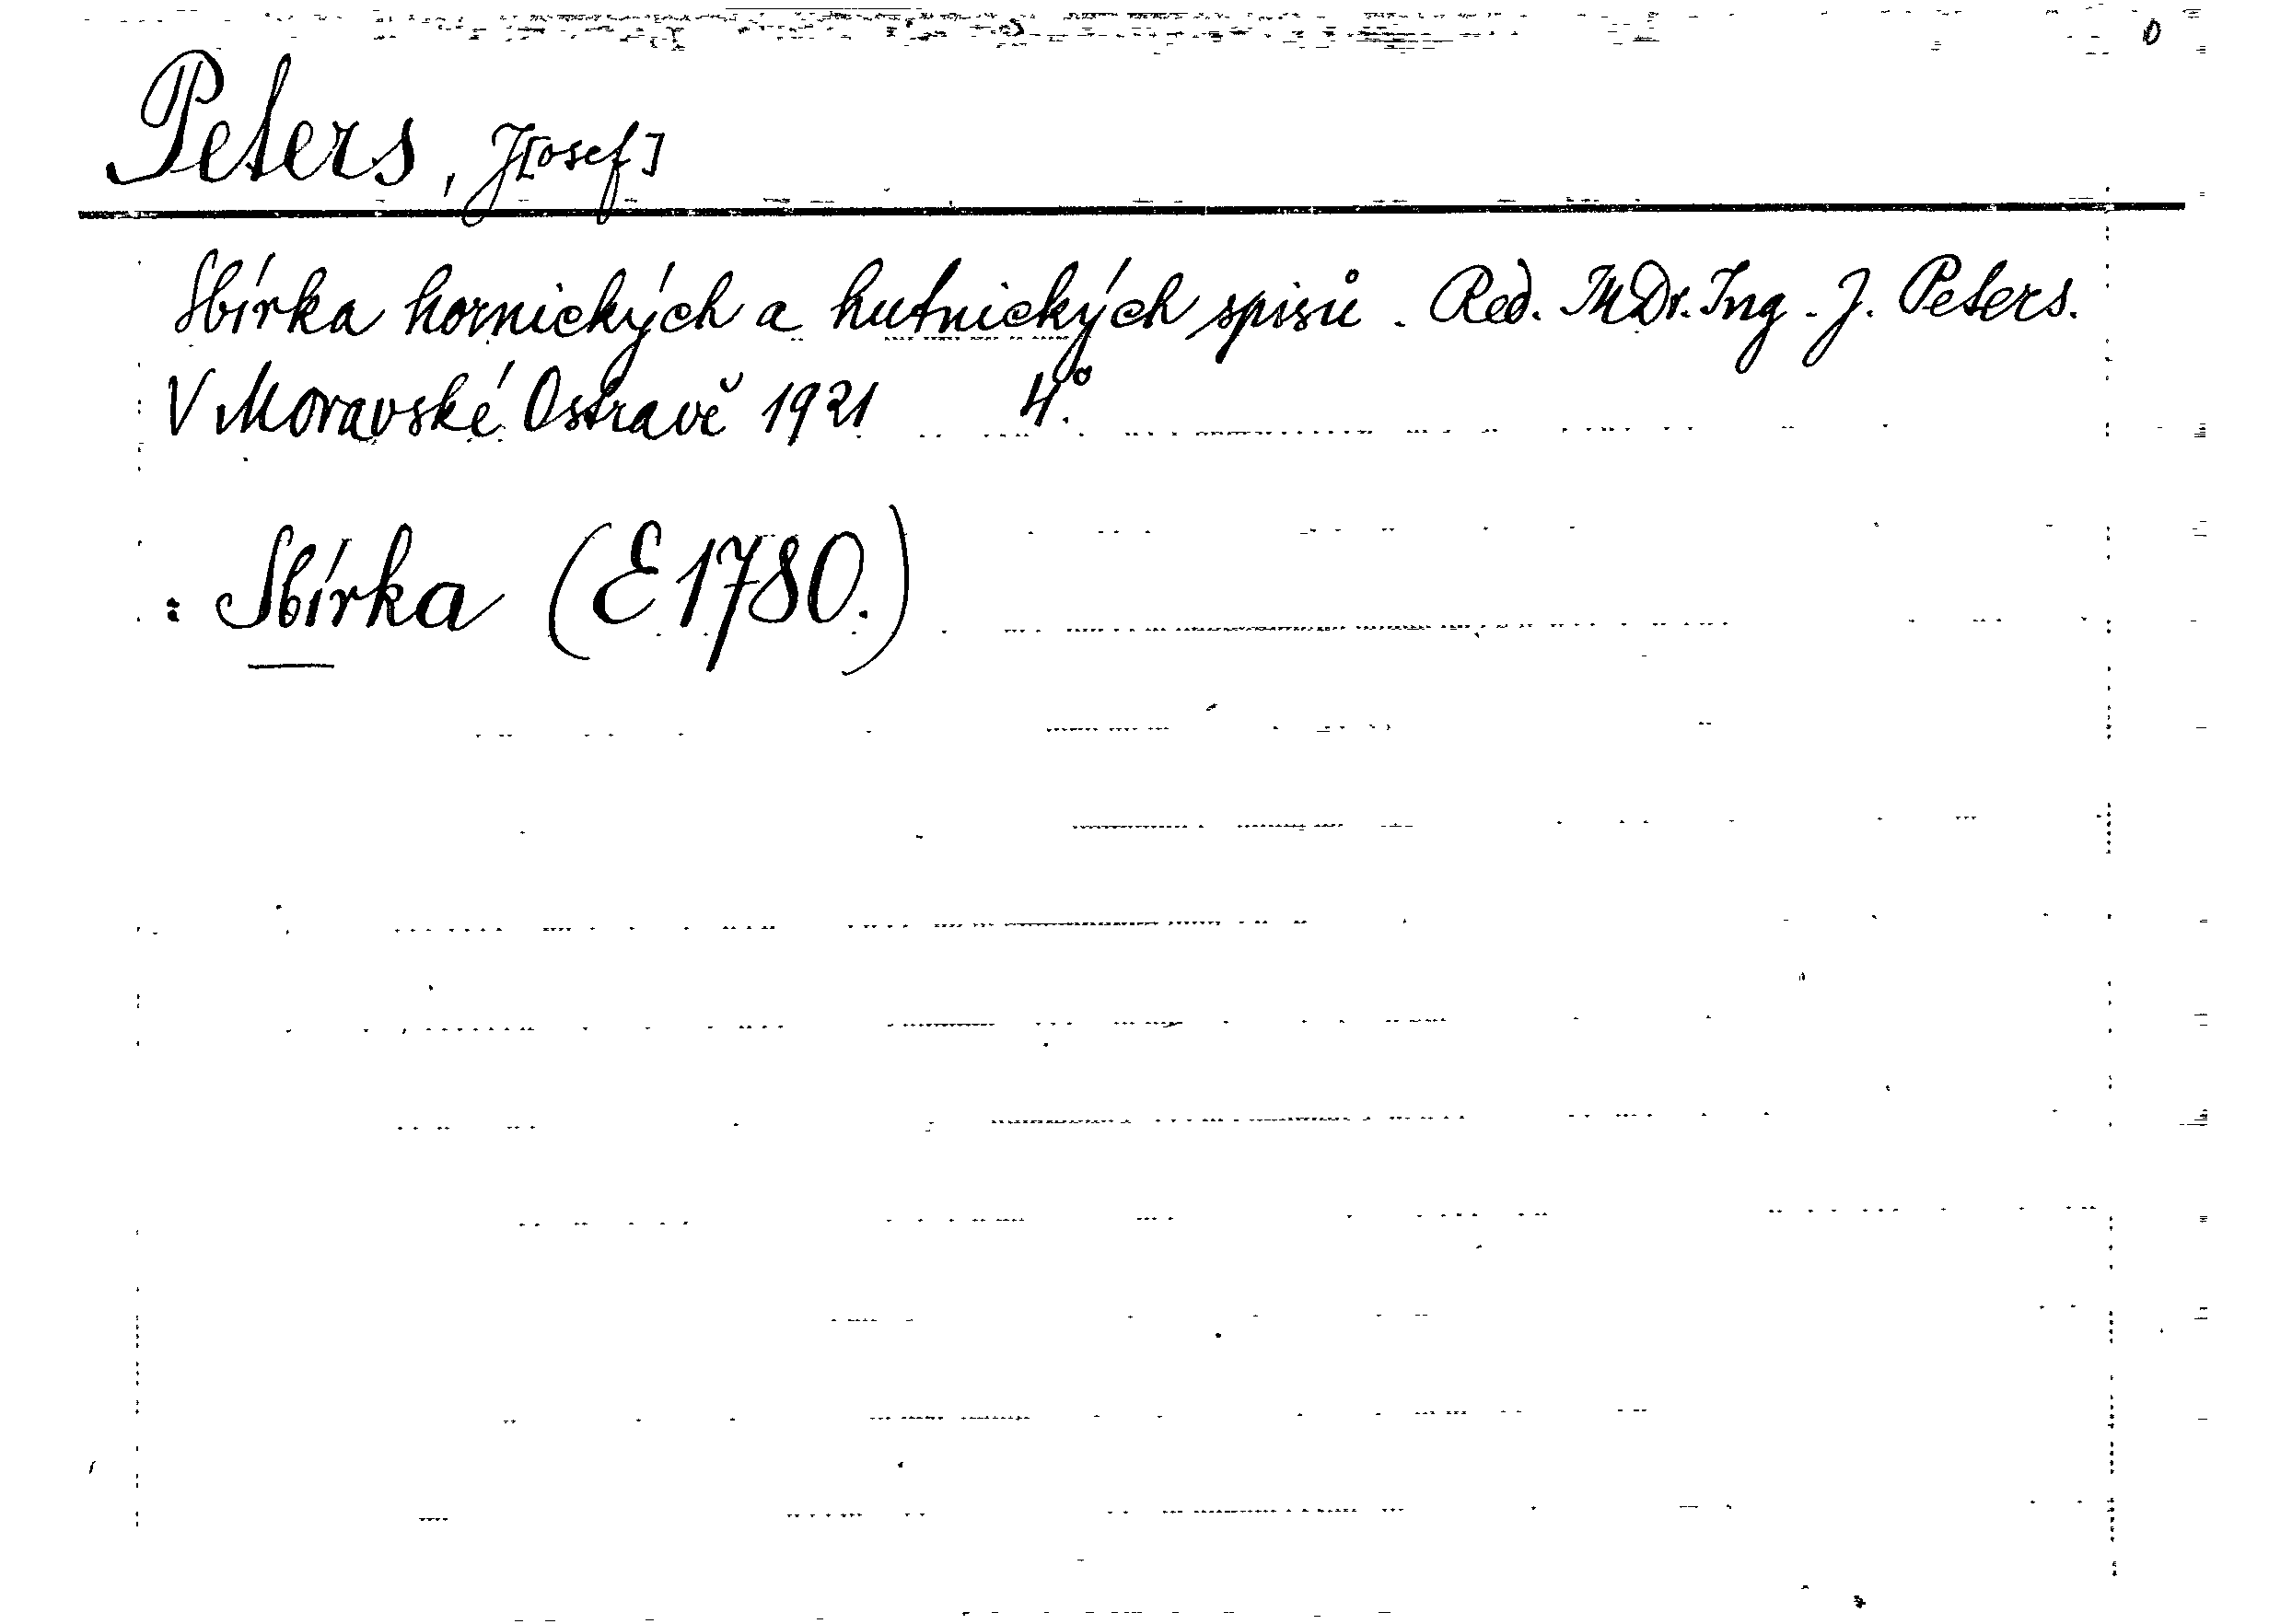 Peters, J[osef]
Sbírka hornických a hutnických spisů. Red. MDr. Ing. J. Peters.
V Moravské Ostravě 1921 4°.
: Sbírka (E 1780.)